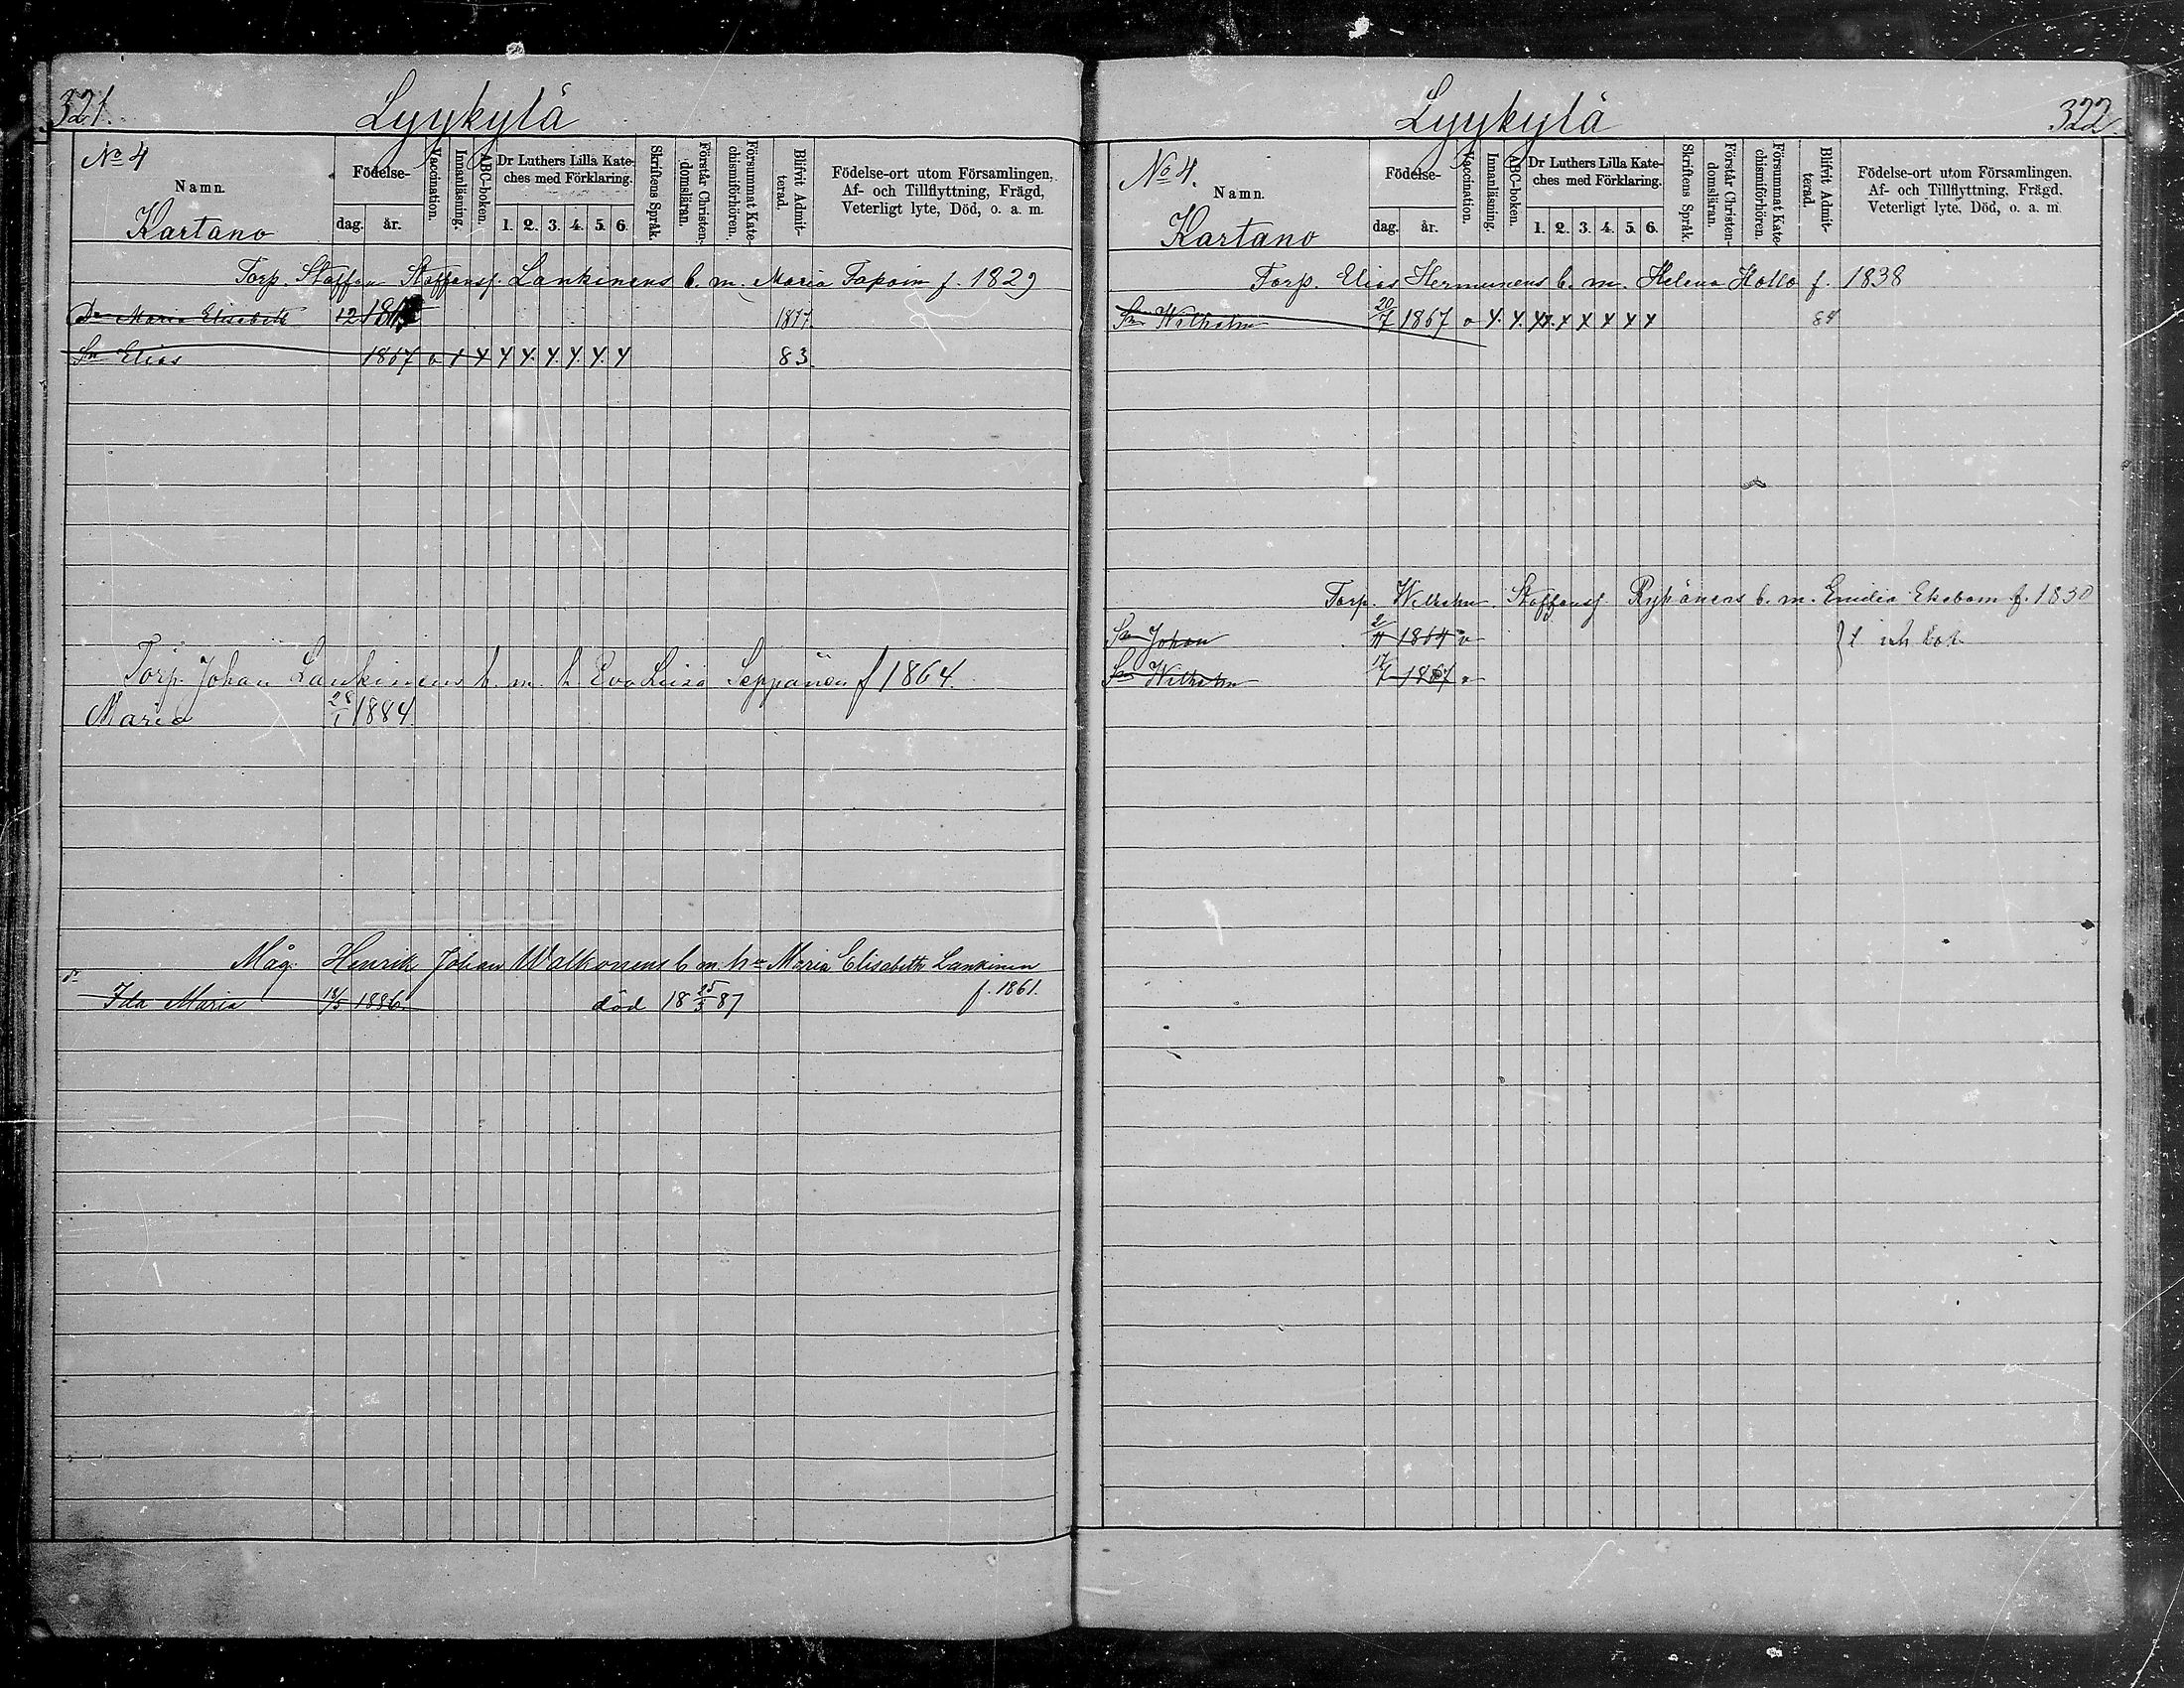 321.
Lyykylä
No 4
Namn.
Kartano
Födelse-
dag.
år.
Vaccination.
Innanläsning.
ABC-boken.
Dr Luthers Lilla Kate-
ches med Förklaring.
1. 2. 3. 4. 5. 6.
Skriftens Språk.
Förstår Christen-
domsläran.
Försummat Kate-
chismiförhören.
Blifvit Admit-
terad.
Födelse-ort utom Församlingen,
Af- och Tillflyttning, Frägd,
Veterligt lyte, Död, o. a. m.
Torp. Staffan Staffanss. Lankinens b. m. Maria f. 1829
Dr Maria Elisabeth 12 1877.
Sn Elias 1867 o 83.
Torp. Johan Lankinens b. m. h. Eva Luisa Seppänen f 1864.
Maria 28/1 1884
Måg. Henrik Johan Walkonens b m hu Maria Elisabeth Lankinen
f. 1861.
Ida Maria 1886. död 18 25/3 87
Lyykylä
322
No 4.
Namn.
Kartano
Födelse-
dag.
år.
Vaccination.
Innanläsning.
ABC-boken.
Dr Luthers Lilla Kate-
ches med Förklaring.
1. 2. 3. 4. 5. 6.
Skriftens Språk.
Förstår Christen-
domsläran.
Försummat Kate-
chismiförhören.
Blifvit Admit-
terad.
Födelse-ort utom Församlingen.
Af- och Tillflyttning, Frägd,
Veterligt lyte, Död, o. a. m.
Torp. Elias Hermunens b. m. Helena Hollo f. 1838
Sn Wilhelm 20/7 1867 o 84
Torp. Wilhelm Staffanss Rypönens b. m. Emilia Ekebom f. 1830
Sn Johan 1864 v
Sn Wilhelm 17/7 1867